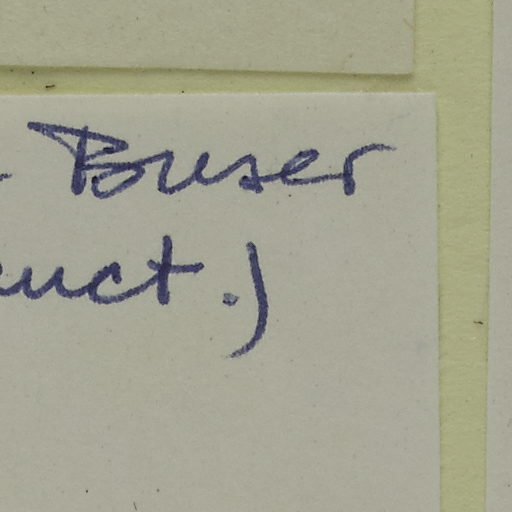 Buser
uct.)